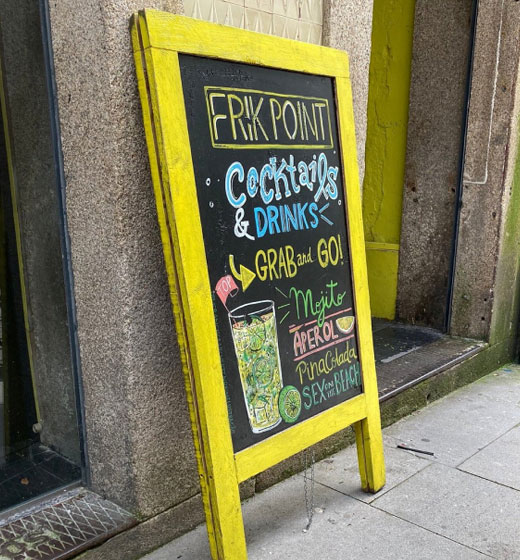 FRIK POINT
Cocktails
& DRINKS
OR
GRAB and GO!
Mojito
APEROL
PINA Colada
SEX ON THE BEACH